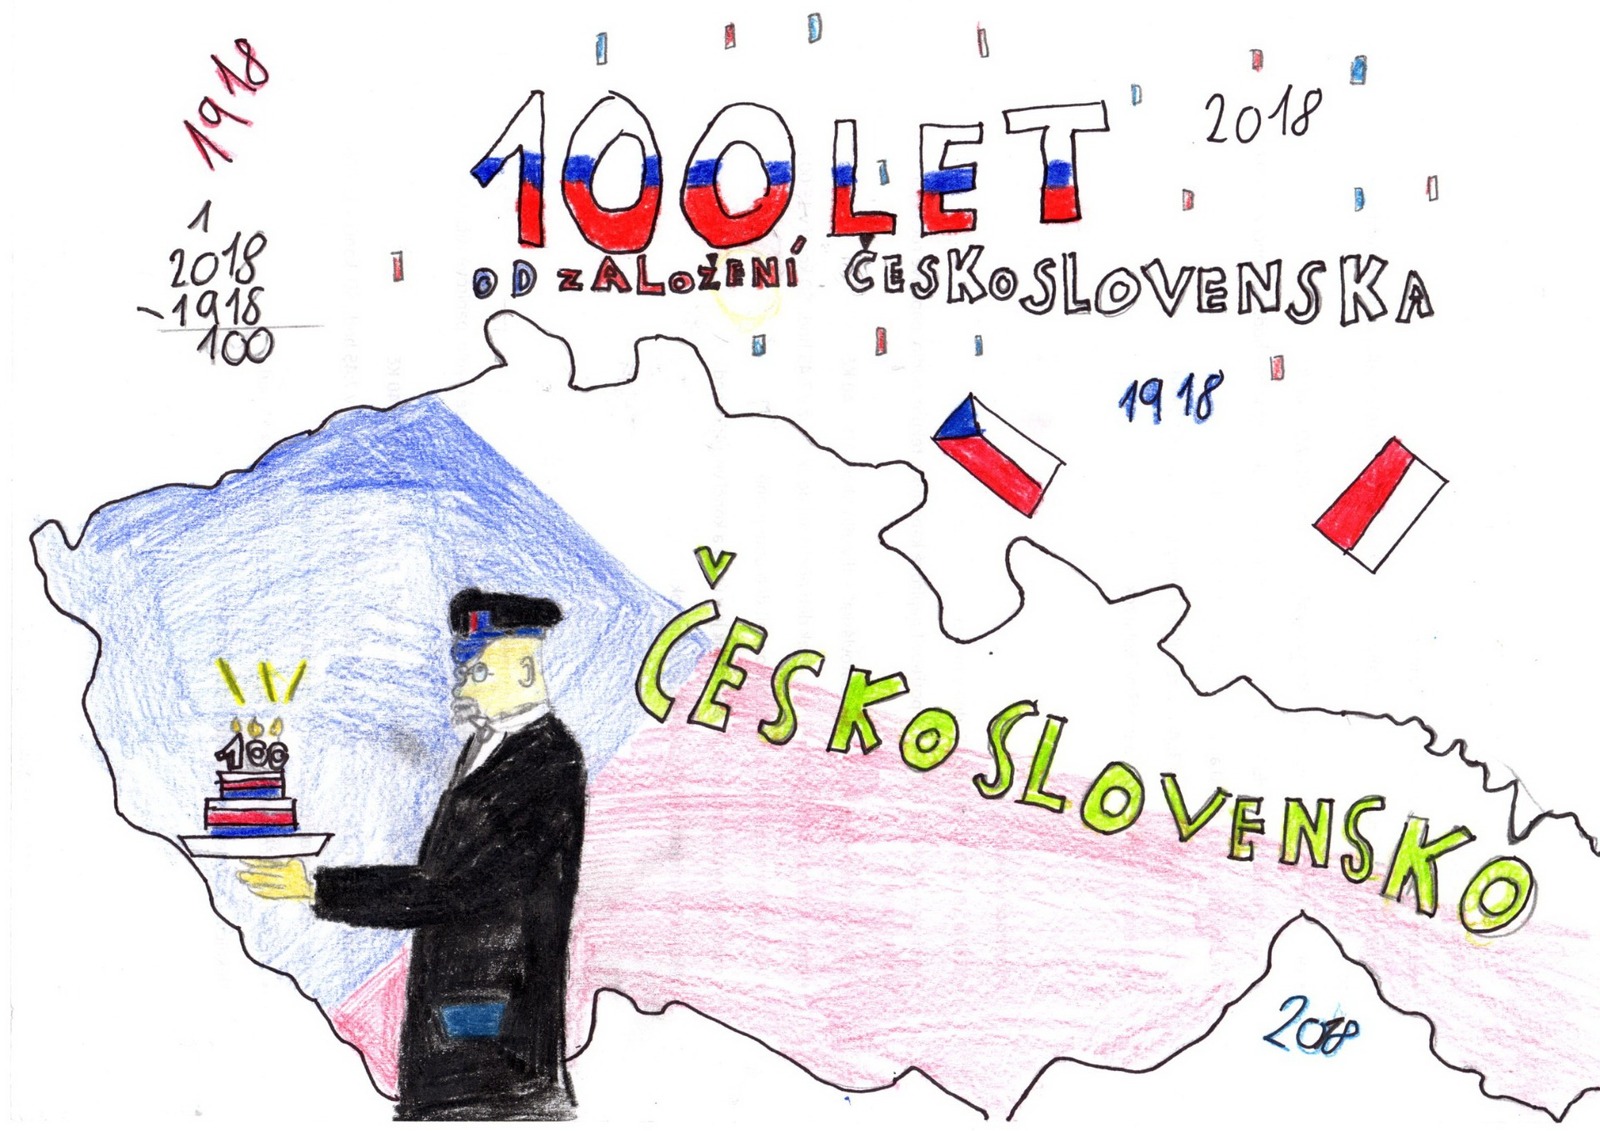 1918
100 LET
2018
1
2018
-1918
100
OD ZALOŽENÍ ČESKOSLOVENSKA
1918
ČESKOSLOVENSKO
100
2018